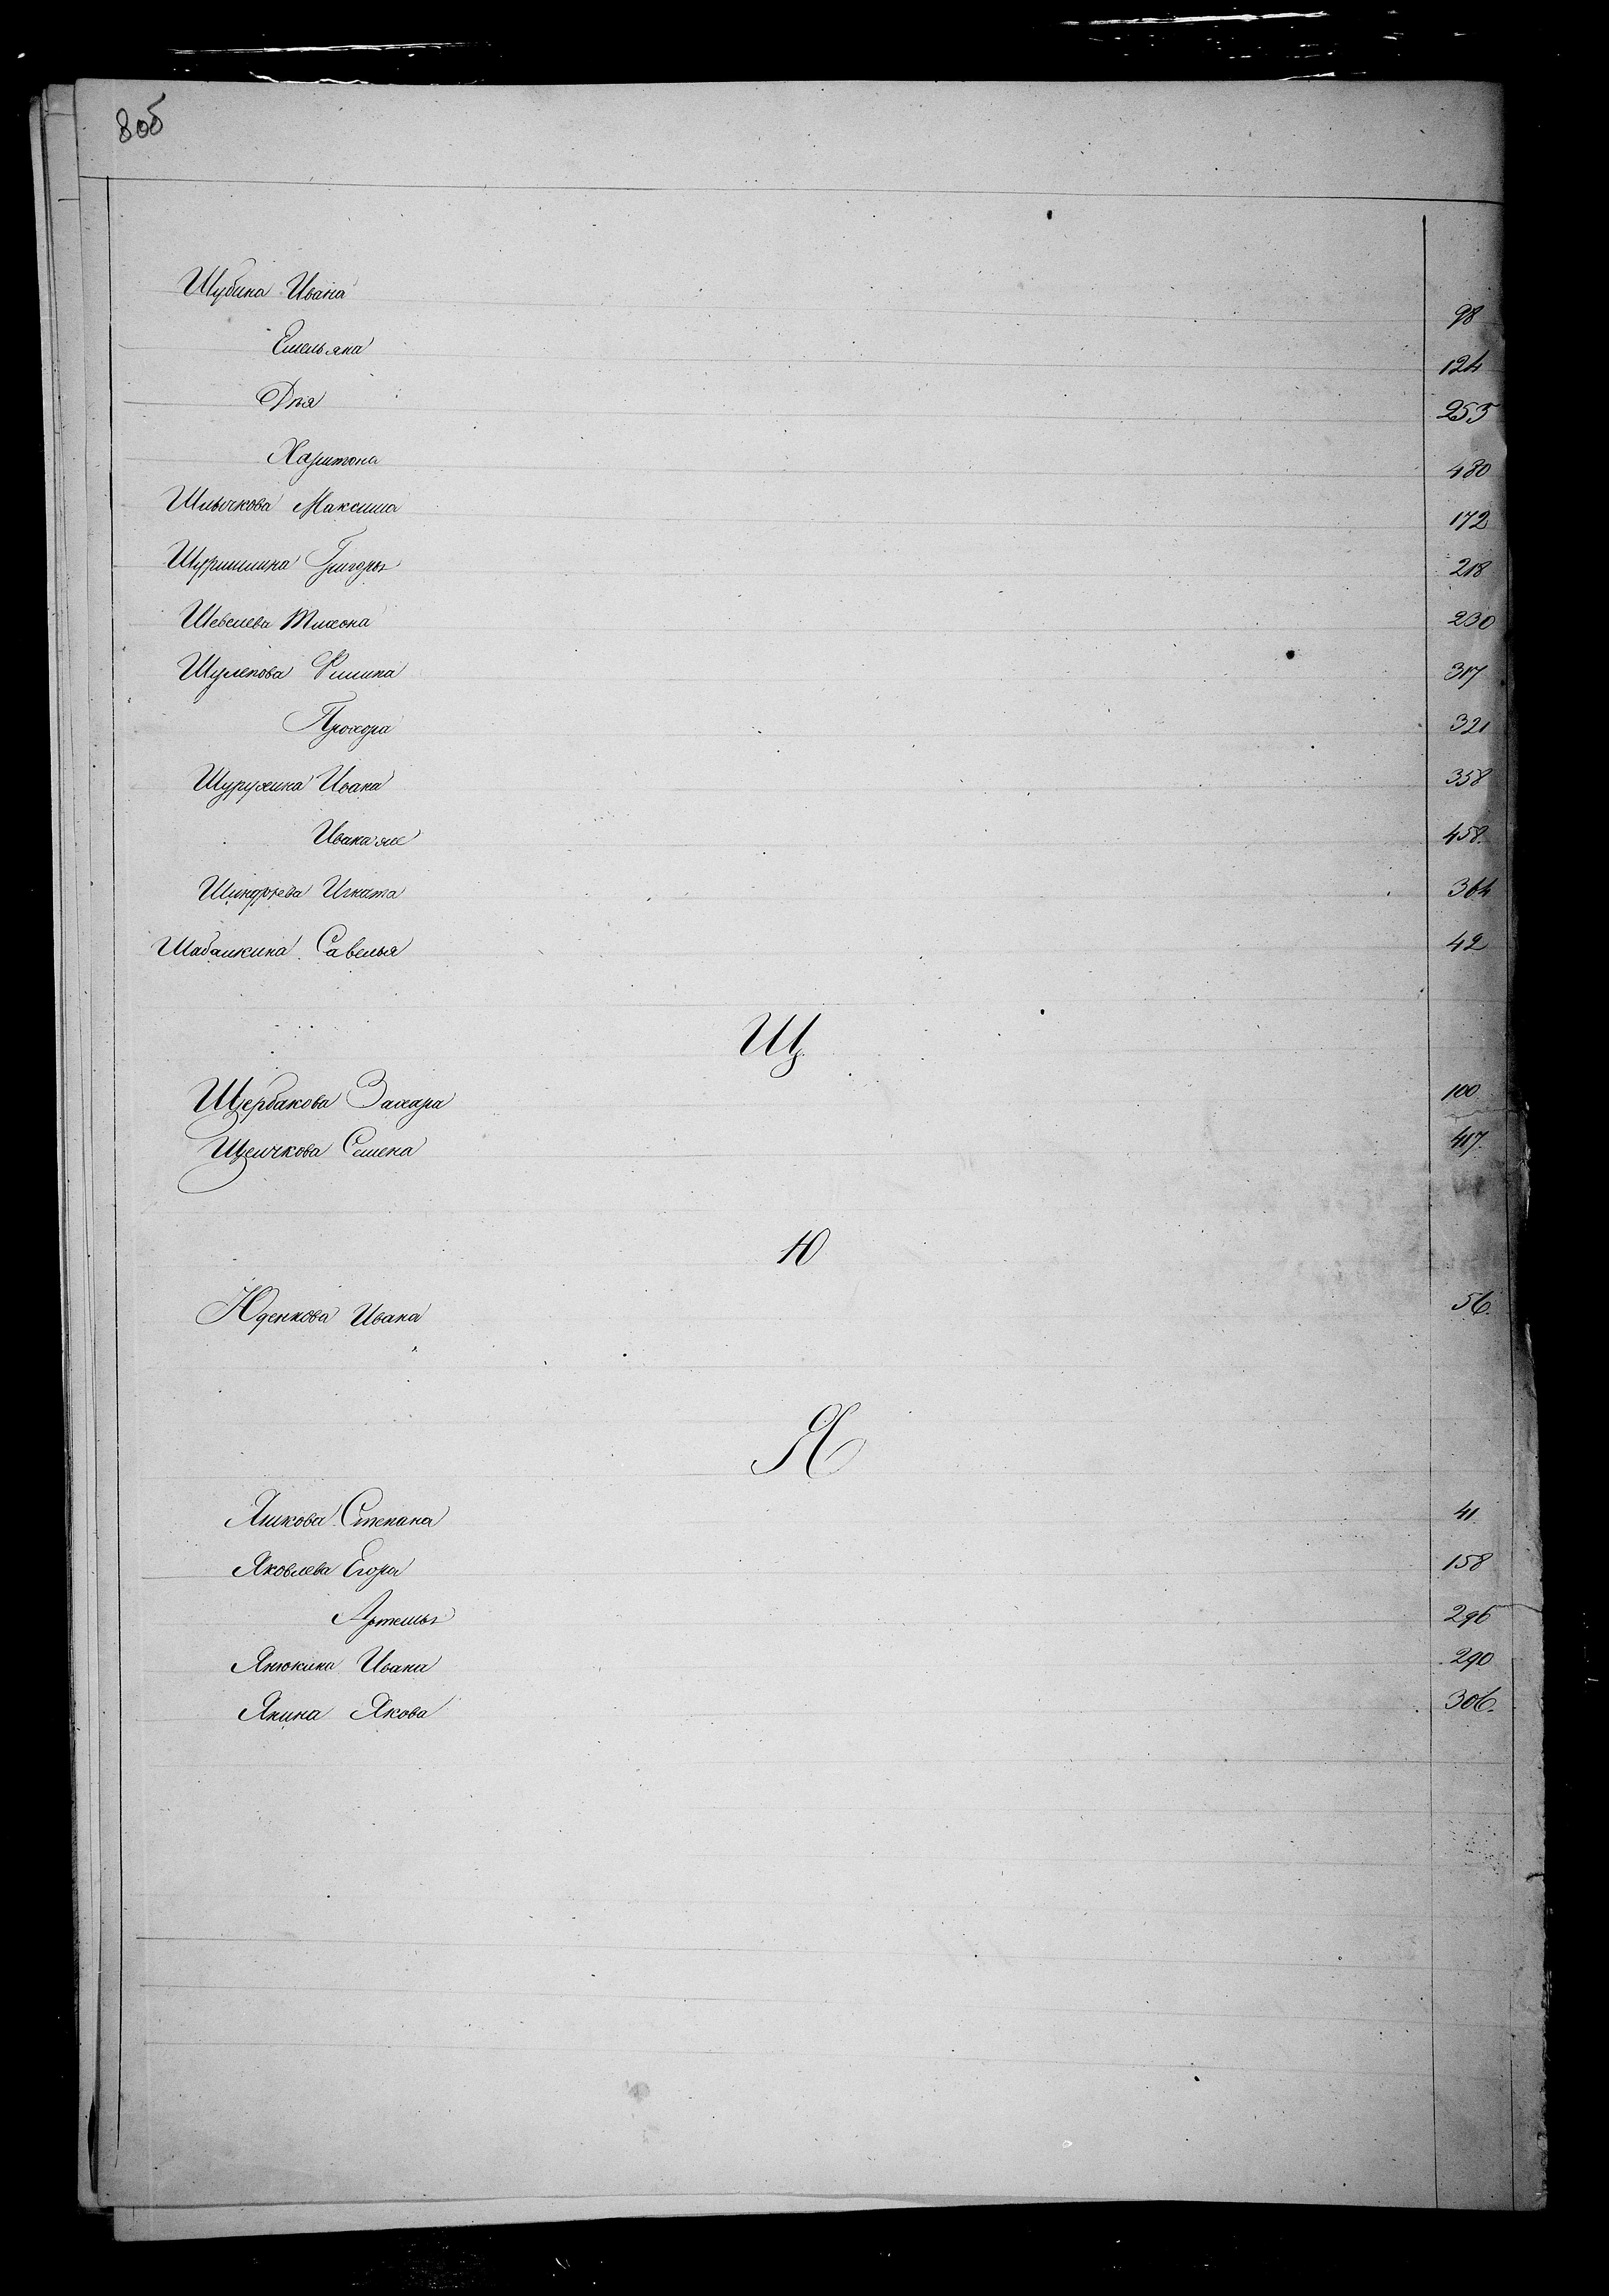 8об
Шубина Ивана 98
Емельяна 124
253
Харитона 480
Шлычкова Максима 172
Григорья 218
Шевелева Тихона 230
Шулепова Филипа 317
Прохора 321
Шурухина Ивана 358
Ивана же 458.
Игната 364
Шабалкина Савелья 42
Щ.
Щербакова Захара 100
Щелчкова Семена 417.
Ю
Юденкова Ивана 56.
Я
Яшкова Степана 41
Яковлева Егора 158
Артемья 296
Янюкина Ивана 290
Якова 306.